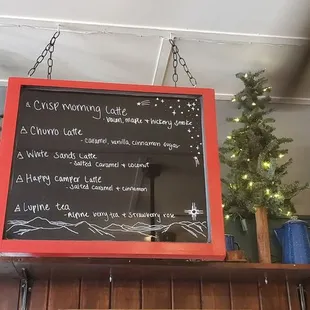 Crisp Morning Latte
- bourbon, maple + hickory smoke
Churro Latte
- caramel, vanilla, cinnamon sugar
White Sands Latte
- salted caramel + coconut
Happy Camper Latte
- salted caramel + cinnamon
Lupine tea
- Alpine berry tea + strawberry rose